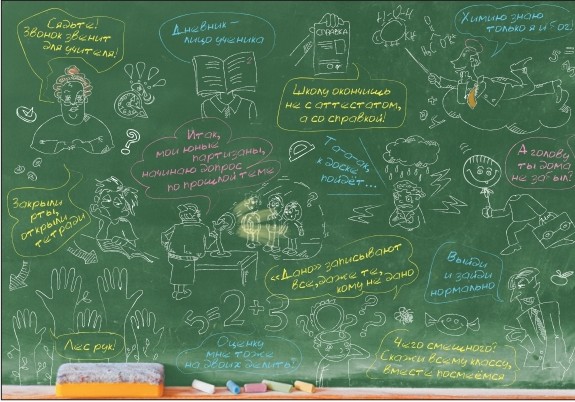 Сядьте!
Звонок звенит
для учителя!
Дневник –
лицо ученика
СПРАВКА
Химию знаю
только я и Бог!
Школу окончишь
не с аттестатом,
а со справкой!
Итак,
мои юные
партизаны,
начинаю допрос
по прошлой теме
Та-а-ак,
к доске
пойдёт...
А голову
ты дома
не забыл!
Закрыли
рты,
открыли
тетради
«Дано» записывают
все, даже те,
кому не дано
Выйди
и зайди
нормально
5=2+3
Лес рук!
Оценку
мне тоже
на двоих делить!
Чего смешного?
Скажи всему классу,
вместе посмеёмся